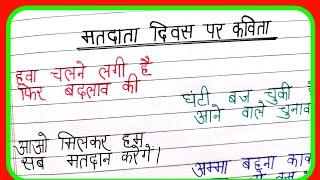 मतदाता दिवस पर कविता
हवा चलने लगी है
फिर बदलाव की
घंटी बज चुकी है
आने वाले चुनाव
आओ मिलकर हम
सब मतदान करेगें।
अम्मा बहना काका